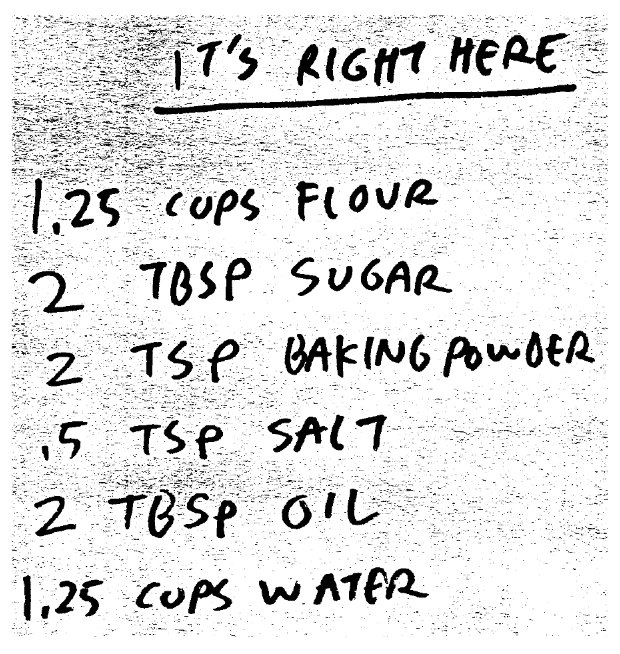 IT'S RIGHT HERE
1.25 CUPS FLOUR
2 TBSP SUGAR
2 TSP BAKING POWDER
.5 TSP SALT
2 TBSP OIL
1.25 CUPS WATER